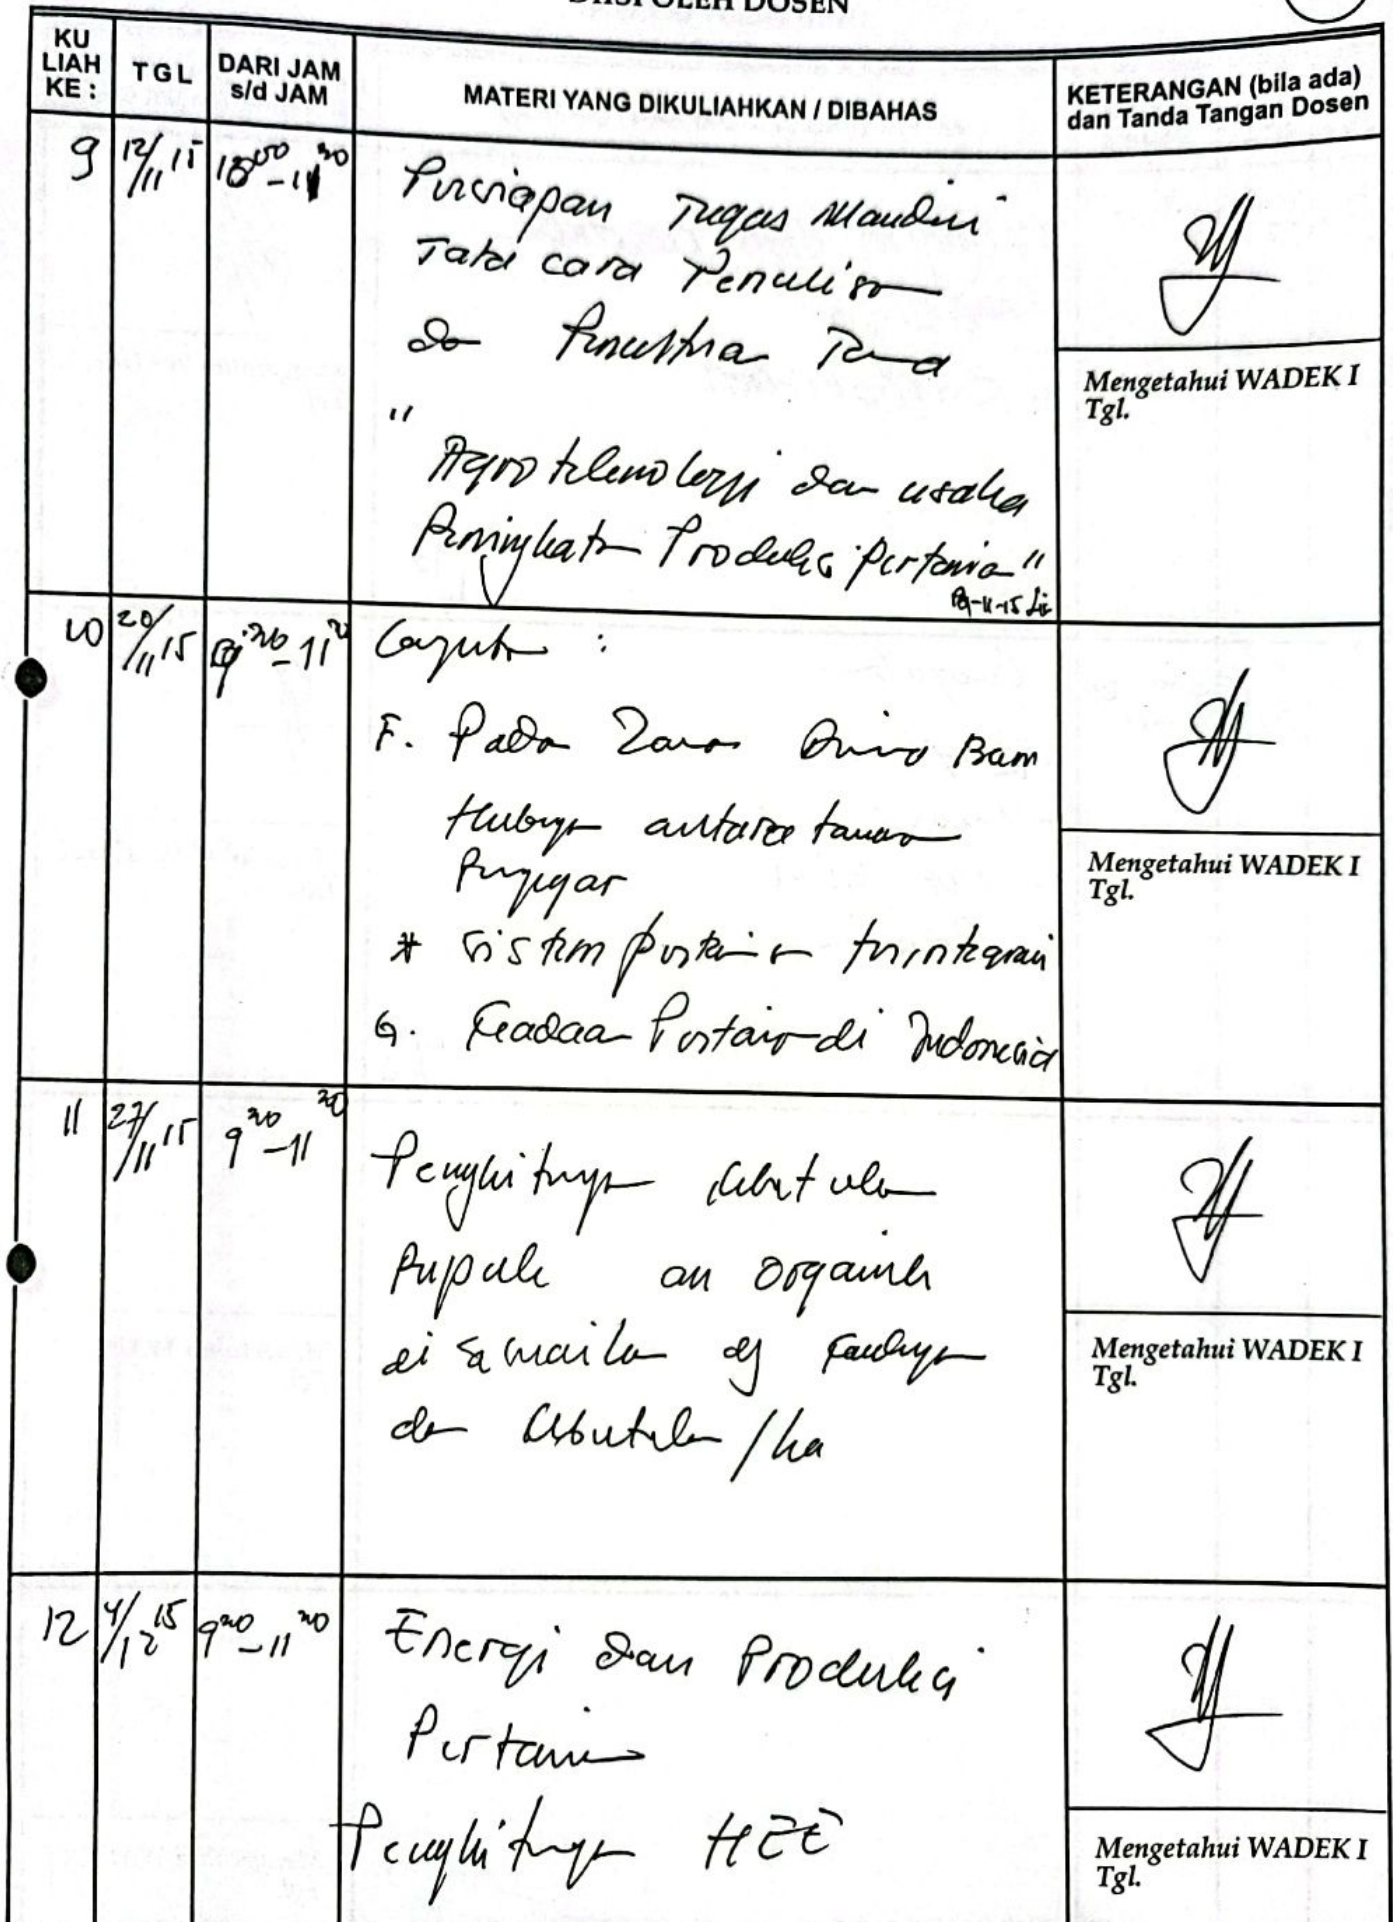 DIISI OLEH DOSEN
KU
LIAH
KE :
T G L
DARI JAM
s/d JAM
MATERI YANG DIKULIAHKAN / DIBAHAS
KETERANGAN (bila ada)
dan Tanda Tangan Dosen
9
12/11 15
Persiapan Tugas Mandiri
Tata cara Penulisan
dan
"
Agroteknologi dan usaha
Peningkatan Produksi Pertanian"
Mengetahui WADEK I
Tgl.
10
20/11 15
Lanjutan :
F. Pada Zaman
Hubungan antara tanaman
* Sistem pertanian terintegrasi
G. Keadaan Pertanian di Indonesia
Mengetahui WADEK I
Tgl.
11
27/11 15
9 30 - 11 30
Penghitungan kebutuhan
Pupuk an organik
di sesuaikan dg kandungan
dan kebutuhan /ha
Mengetahui WADEK I
Tgl.
12
4/12 15
9 30 - 11 30
Energi dan Produksi
Pertanian
Penghitungan HEE
Mengetahui WADEK I
Tgl.